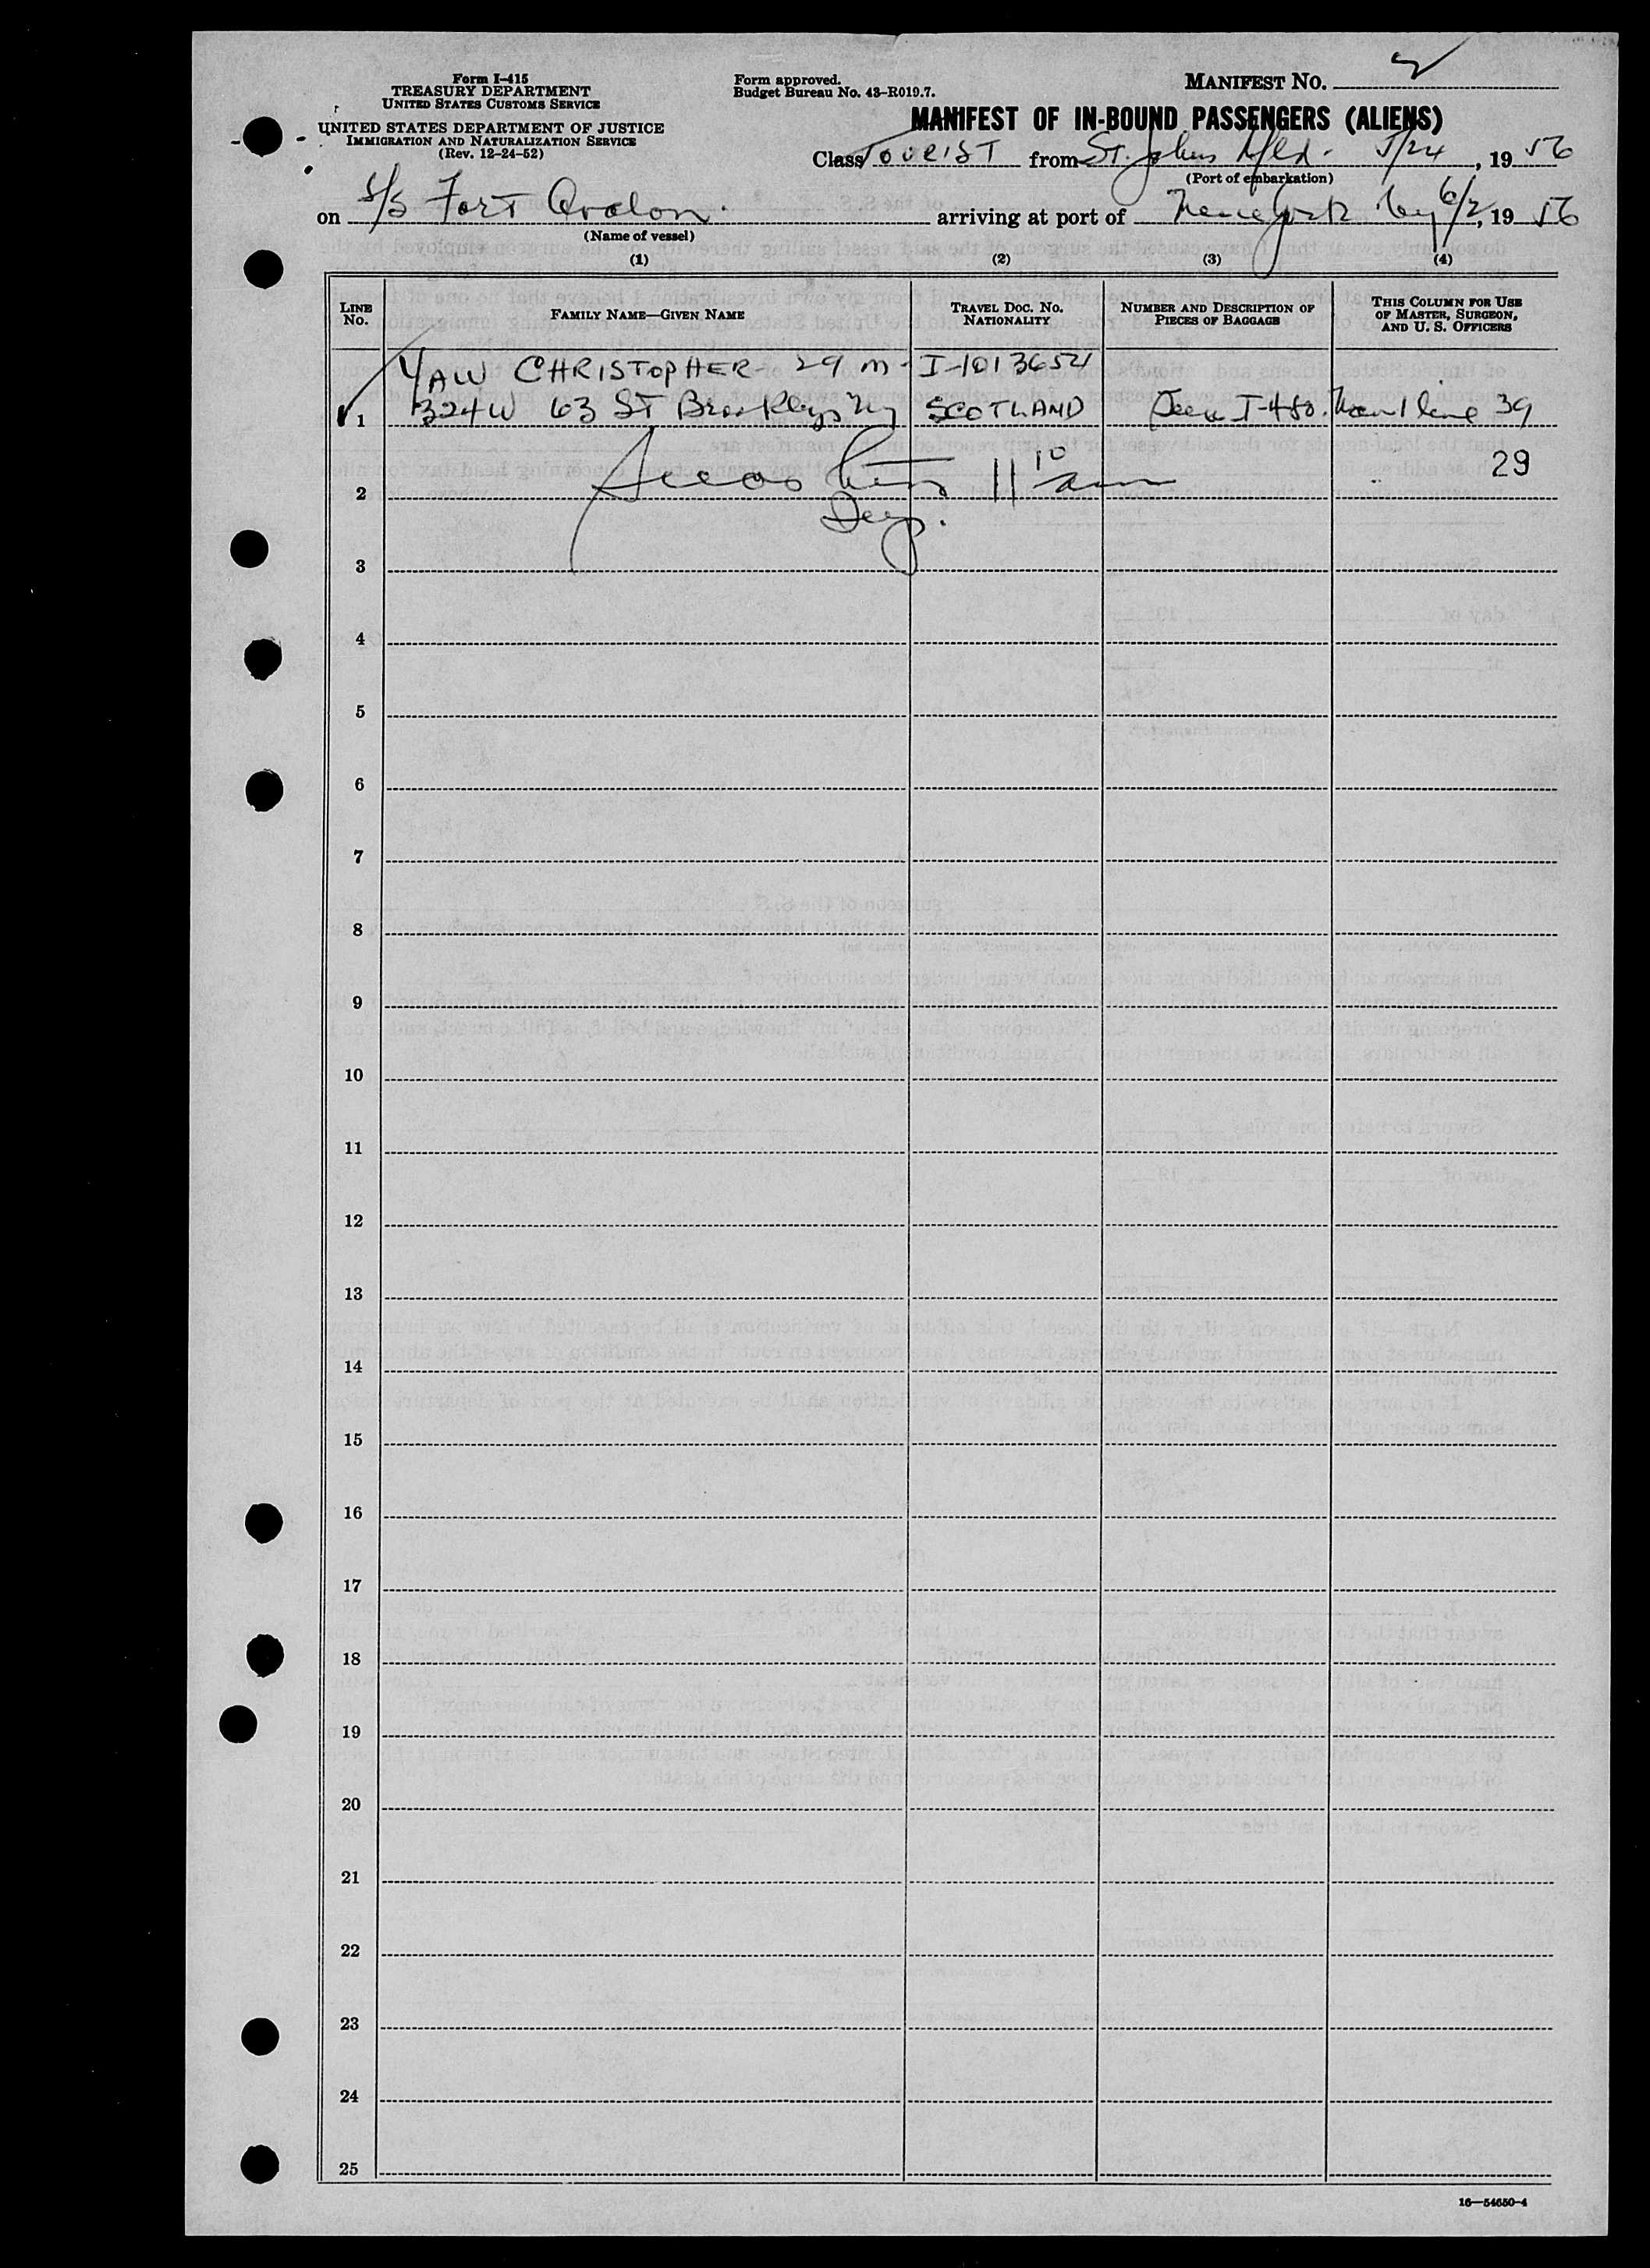 Form I-415
TREASURY DEPARTMENT
UNITED STATES CUSTOMS SERVICE
UNITED STATES DEPARTMENT OF JUSTICE
IMMIGRATION AND NATURALIZATION SERVICE
(Rev. 12-24-52)
Form approved.
Budget Bureau No. 43-R019.7.
MANIFEST No. 2
MANIFEST OF IN-BOUND PASSENGERS (ALIENS)
Class TOURIST from St. Johns Nfld. 5/24, 19 56
(Port of embarkation)
on S/S Fort Avalon. arriving at port of New York 6/2, 19 56
(Name of vessel)
(1) (2) (3) (4)
LINE No. FAMILY NAME—GIVEN NAME TRAVEL DOC. No. NATIONALITY NUMBER AND DESCRIPTION OF PIECES OF BAGGAGE THIS COLUMN FOR USE OF MASTER, SURGEON, AND U. S. OFFICERS
YAW CHRISTOPHER 29 M- I-1013654
1 324W 63 ST Brooklyn NY SCOTLAND I-450. line 39
11 10 am 29
2
Insp.
3
4
5
6
7
8
9
10
11
12
13
14
15
16
17
18
19
20
21
22
23
24
25
16—54650-4